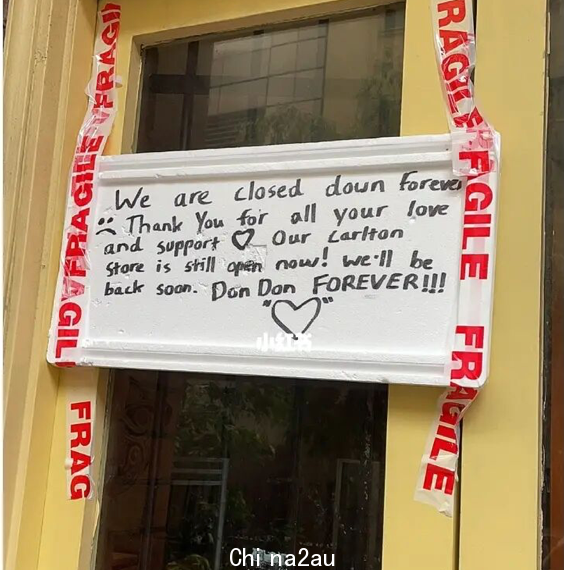 We are closed down Forever
:( Thank You for all your love
and support ♡ Our Carlton
store is still open now! We'll be
back soon. Don Don FOREVER!!!
"♡"
小红书
FRAGILE
FRAGILE
FRAGILE
FRAG
FRAGILE
FRAGILE
FRAGILE
Chi na2au